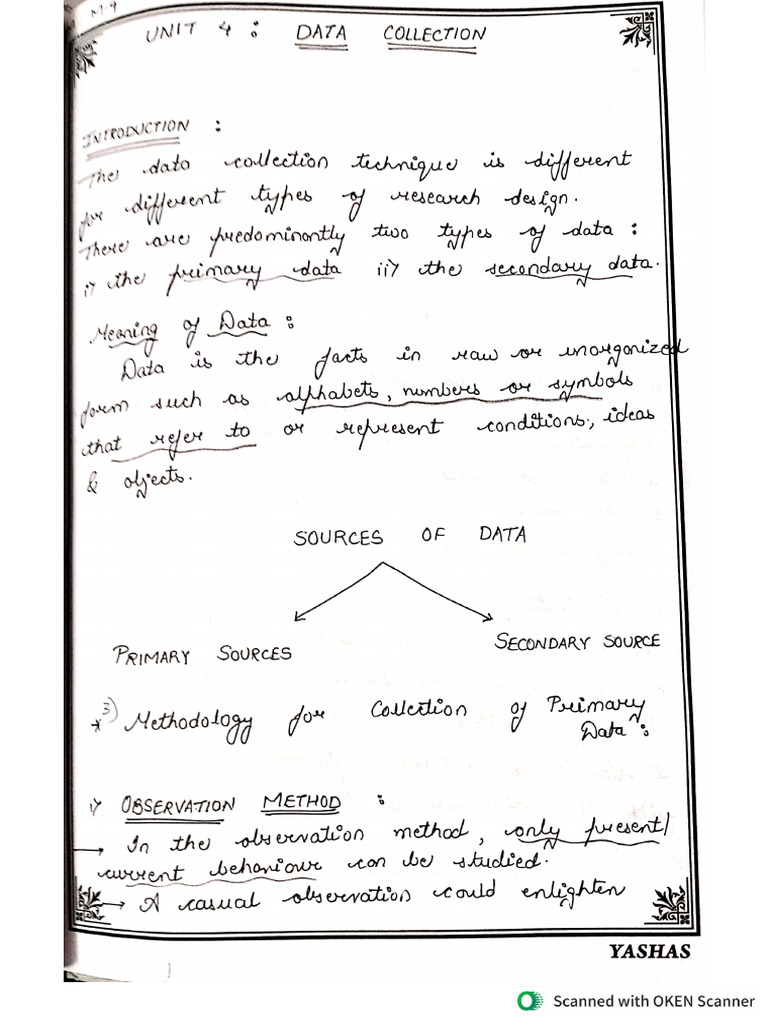 M-9
UNIT 4 : DATA COLLECTION
INTRODUCTION :
The data collection technique is different
for different types of research design.
There are predominantly two types of data :
i) the primary data ii) the secondary data.
Meaning of Data :
Data is the facts in raw or unorganized
form such as alphabets, numbers or symbols
that refer to or represent conditions, ideas
& objects.
SOURCES OF DATA
PRIMARY SOURCES SECONDARY SOURCE
* 3) Methodology for Collection of Primary
Data :
i) OBSERVATION METHOD :
→ In the observation method, only present/
current behaviour can be studied.
→ A casual observation could enlighten
YASHAS
Scanned with OKEN Scanner